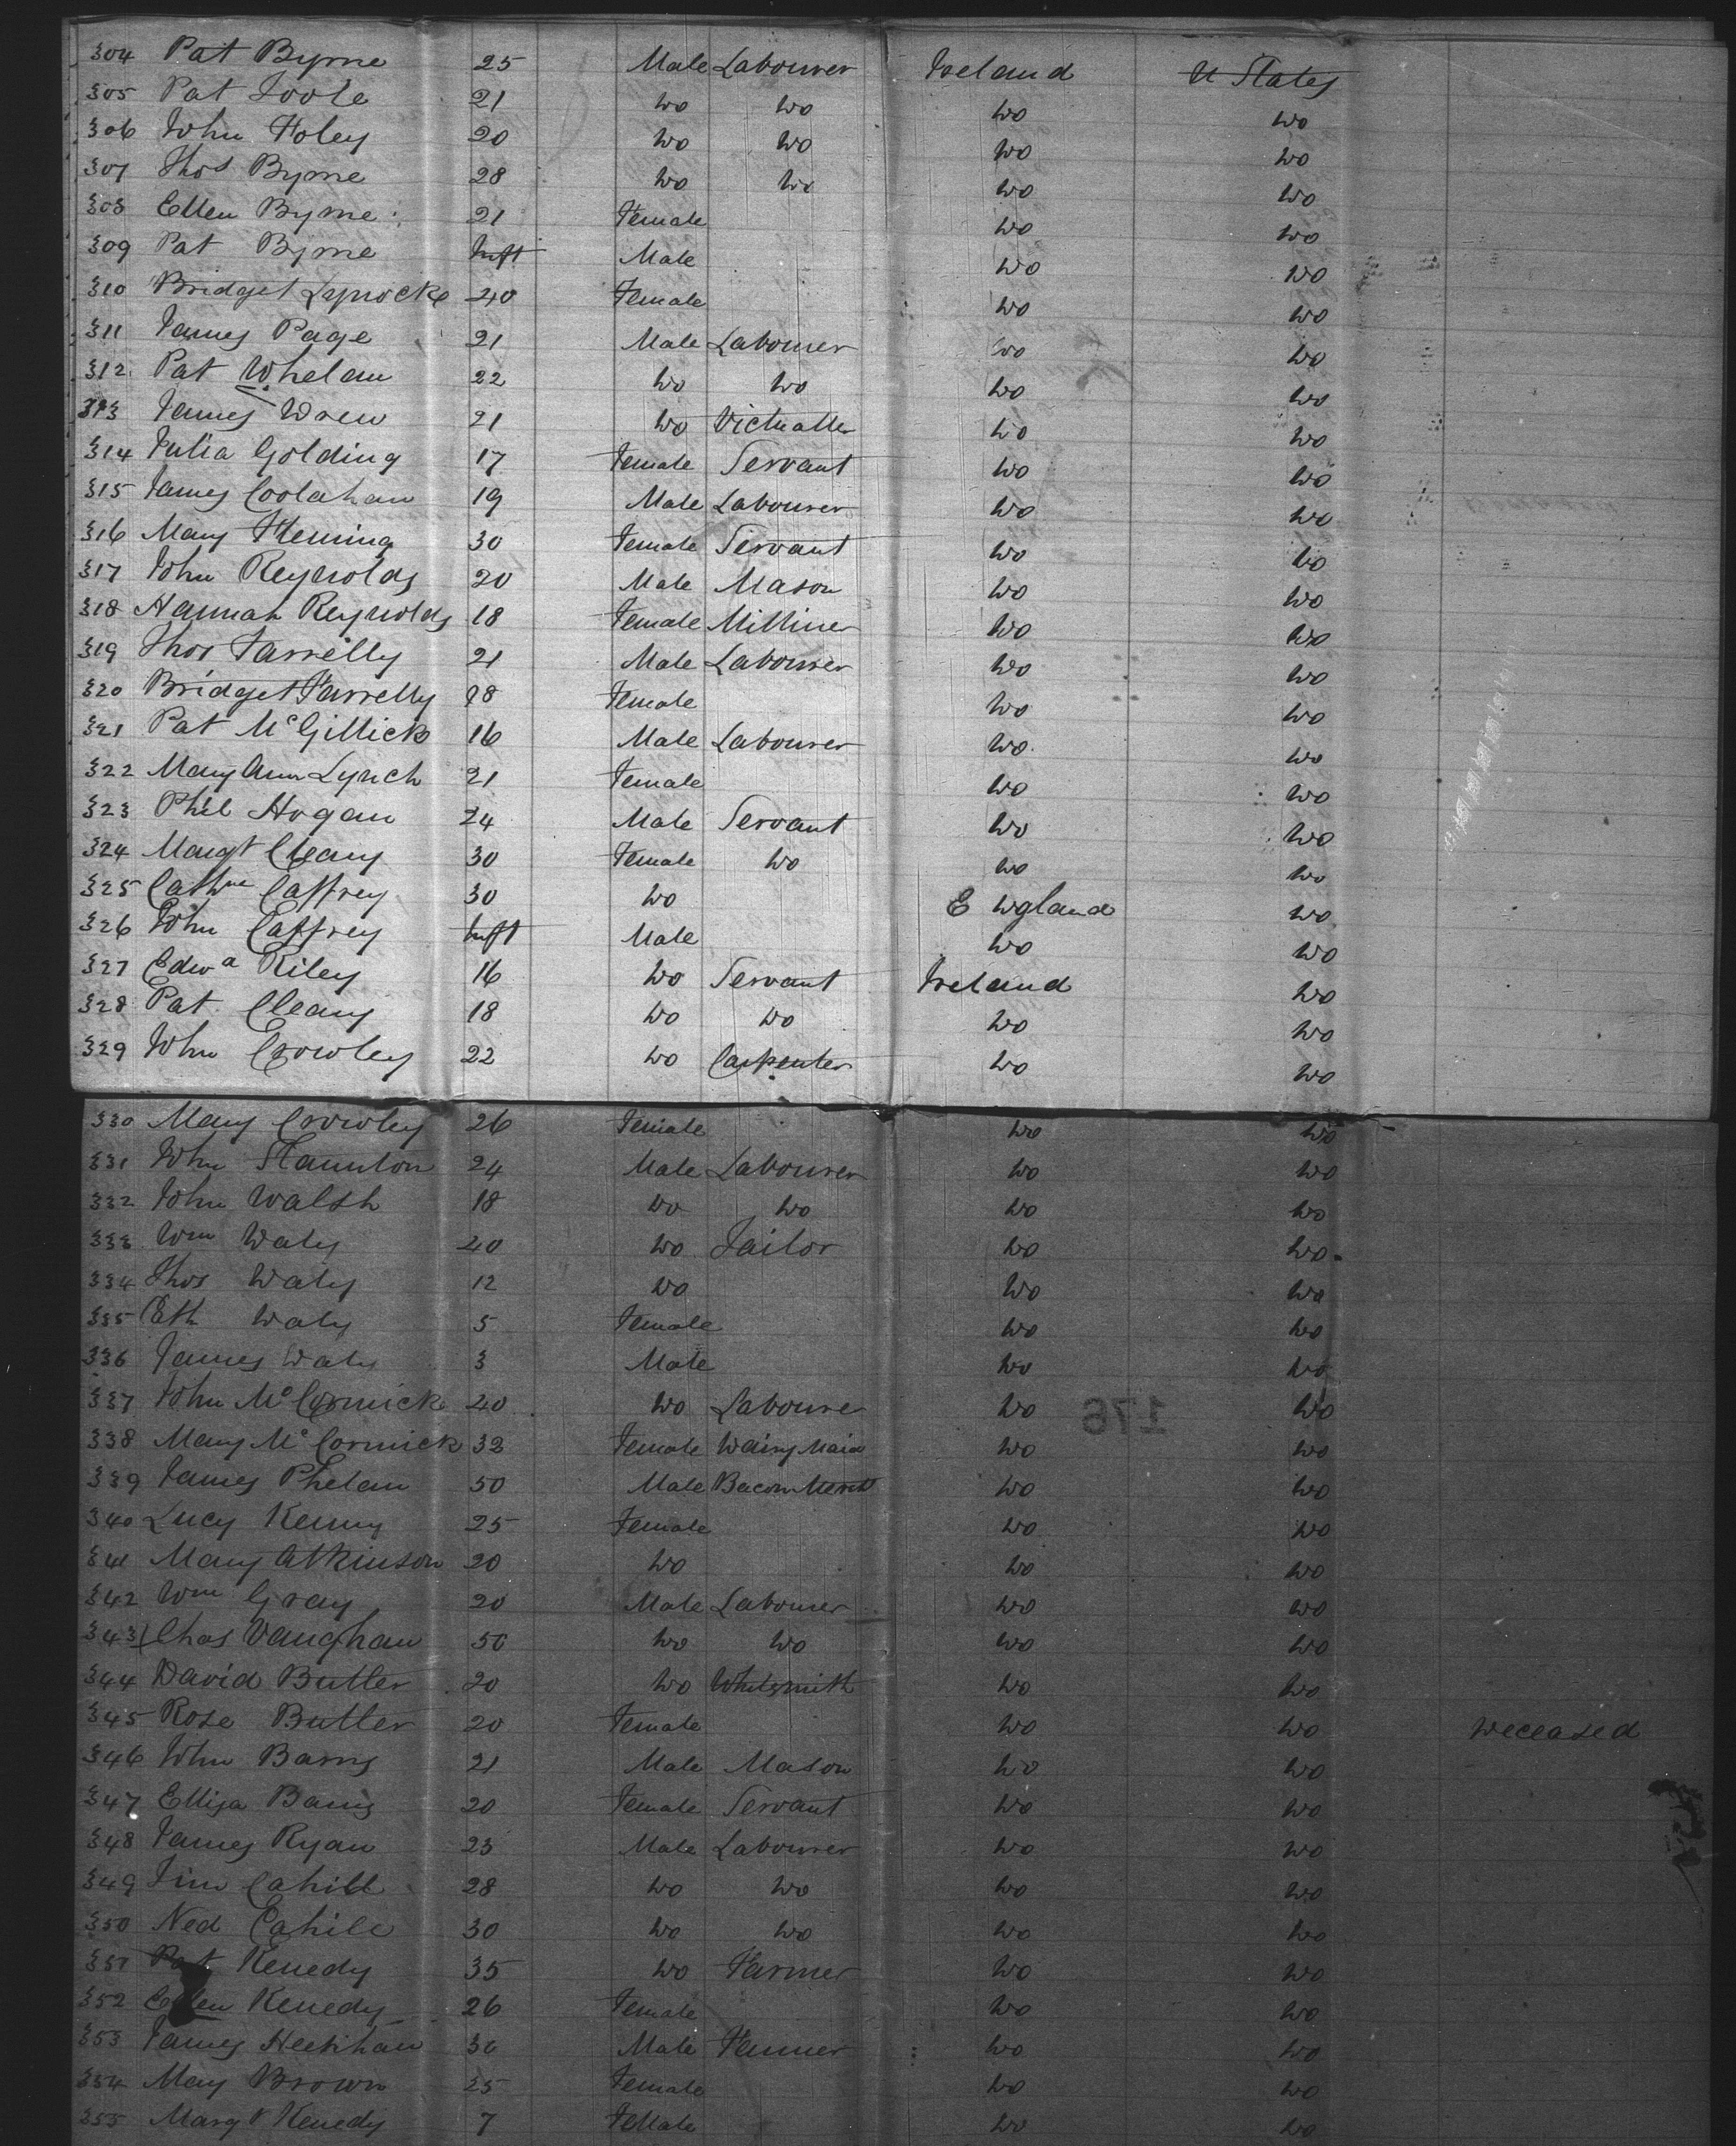 304 Pat Byrne 25 Male Labourer Ireland U States
305 Pat Toole 21 Do Do Do Do
306 John Foley 20 Do Do Do Do
307 Thos Byrne 28 Do Do Do Do
308 Ellen Byrne 21 Female Do Do
309 Pat Byrne Inft Male Do Do
310 Bridget 40 Female Do Do
311 James Page 21 Male Labourer Do Do
312 Pat Whelan 22 Do Do Do Do
313 James Drew 21 Do Victualler Do Do
314 Julia Golding 17 Female Servant Do Do
315 James Coolahan 19 Male Labourer Do Do
316 Mary Fleming 30 Female Servant Do Do
317 John Reynolds 20 Male Mason Do Do
318 Hannah Reynolds 18 Female Milliner Do Do
319 Thos Farrelly 21 Male Labourer Do Do
320 Bridget Farrelly 18 Female Do Do
321 Pat McGillick 16 Male Labourer Do Do
322 Mary Ann Lynch 21 Female Do Do
323 Phil Hogan 24 Male Servant Do Do
324 Margt Cleary 30 Female Do Do Do
325 Cathne Caffrey 30 Do England Do
326 John Caffrey Inft Male Do Do
327 Edwd Riley 16 Do Servant Ireland Do
328 Pat Cleary 18 Do Do Do Do
329 John Crowley 22 Do Carpenter Do Do
330 Mary Crowley 26 Female Do Do
331 John Staunton 24 Male Labourer Do Do
332 John Walsh 18 Do Do Do Do
333 Wm Daly 40 Do Tailor Do Do
334 Thos Daly 12 Do Do Do
335 Eth Daly 5 Female Do Do
336 James Daly 3 Male Do Do
337 John McCormick 40 Do Laboure Do Do
338 Mary McCormick 32 Female Dairy Maid Do Do
339 James Phelan 50 Male Bacon Mercht Do Do
340 Lucy Kenny 25 Female Do Do
341 Mary Atkinson 20 Do Do Do
342 Wm Gray 20 Male Labourer Do Do
343 Chas Vaughan 50 Do Do Do Do
344 David Butler 20 Do Whitesmith Do Do
345 Rose Butler 20 Female Do Do Deceased
346 John Barns 21 Male Mason Do Do
347 Elliza Barns 20 Female Servant Do Do
348 James Ryan 23 Male Labourer Do Do
349 Jim Cahill 28 Do Do Do Do
350 Ned Cahill 30 Do Do Do Do
351 Pat Kenedy 35 Do Farmer Do Do
352 Ellen Kenedy 26 Female Do Do
353 James 30 Male Farmer Do Do
354 Mary Brown 25 Female Do Do
355 Margt Kenedy 7 FeMale Do Do
176